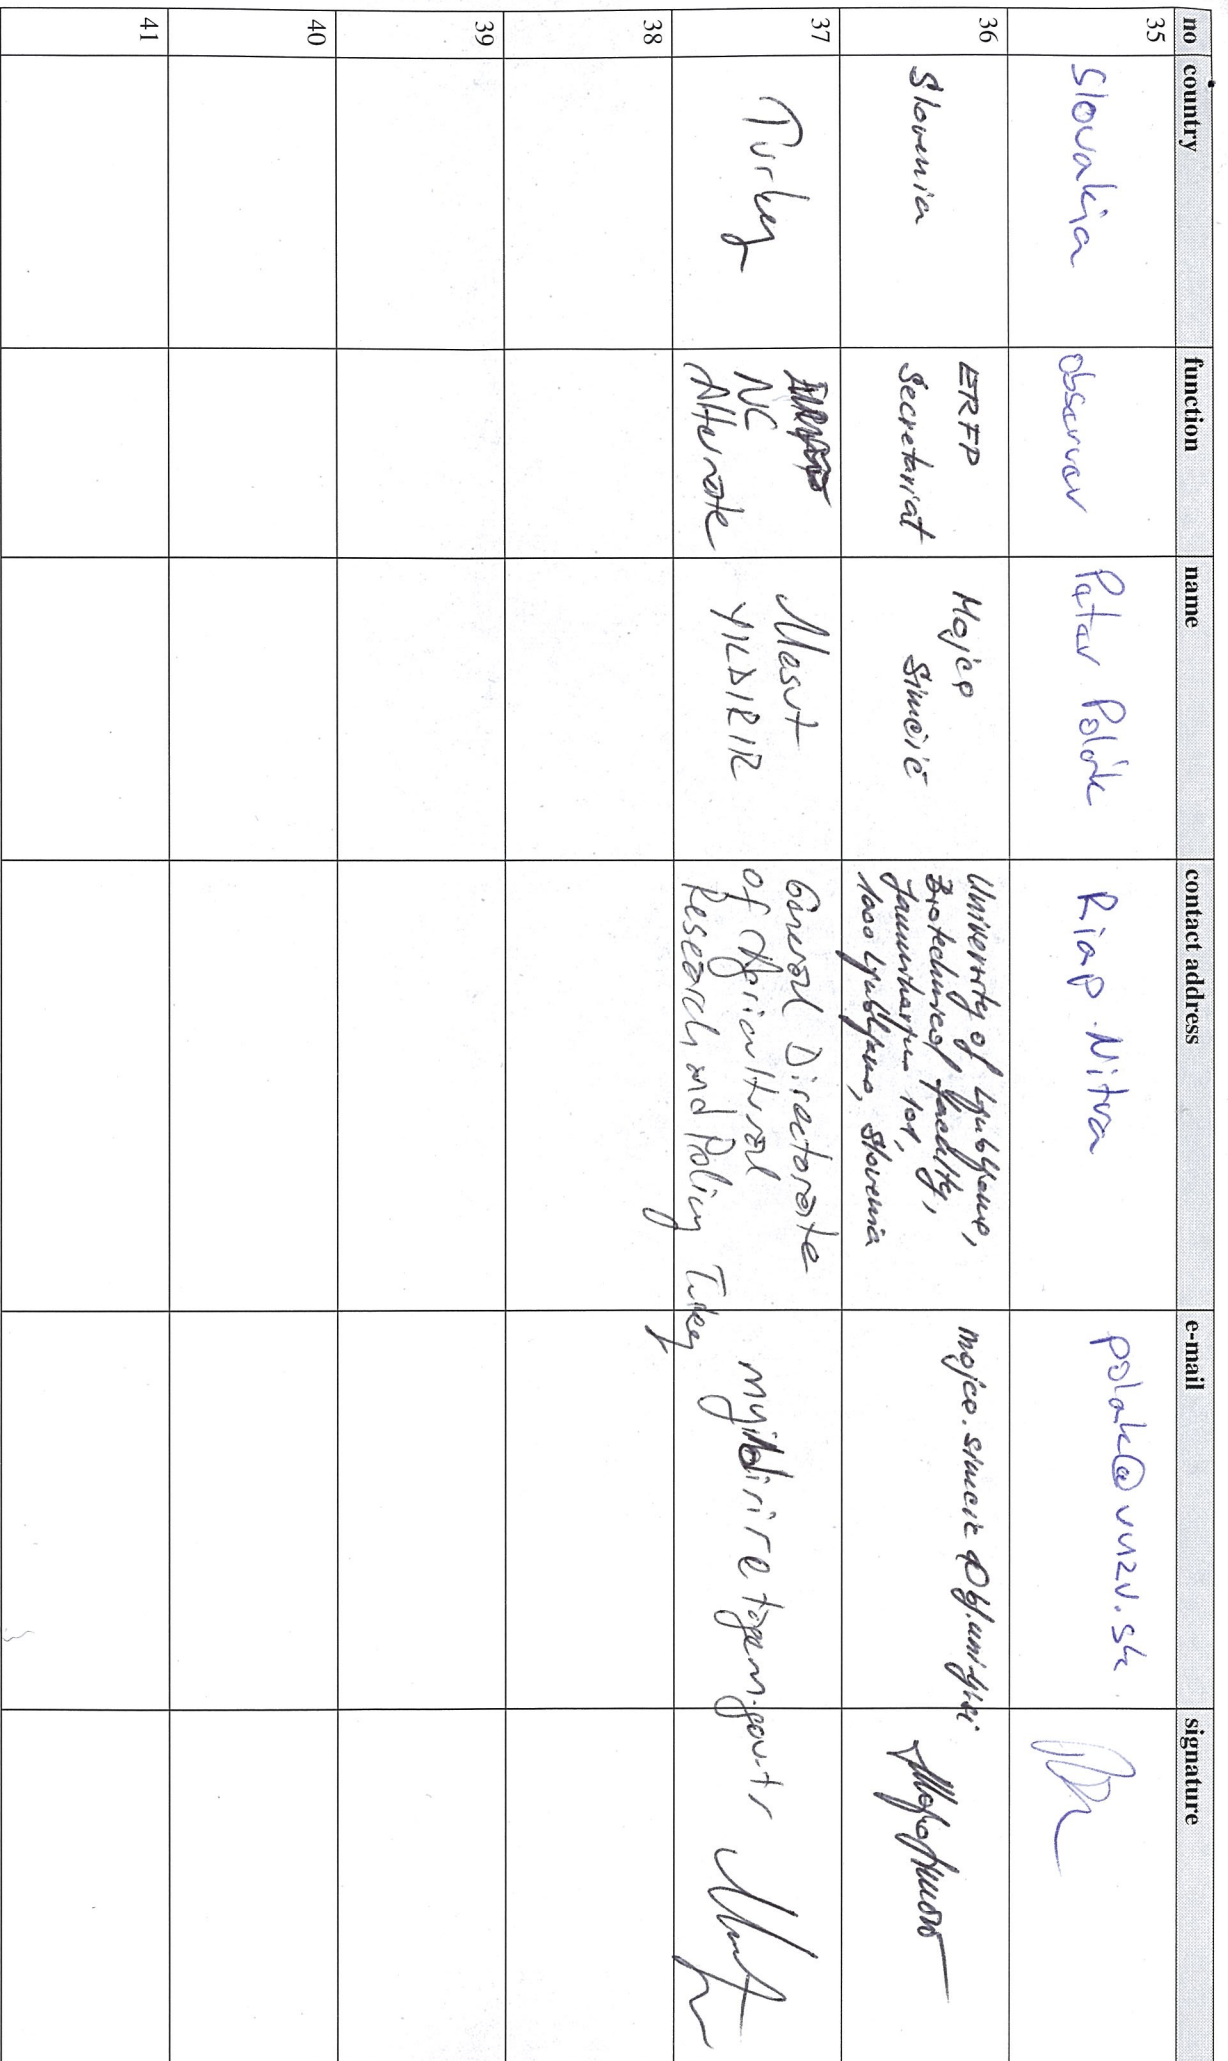 no country function name contact address e-mail signature
35 Slovakia observer Peter Polák Riap Nitra polak@vuzv.sk
36 Slovenia
ERFP
Secretariat
Mojca
Simčič
University of Ljubljana,
Biotechnical faculty,
101,
1000 Ljubljana, Slovenia
37 Turkey
NC
Alternate
Mesut
YILDIRIR
General Directorate
of Agricultural
Research and Policy Turkey
38
39
40
41